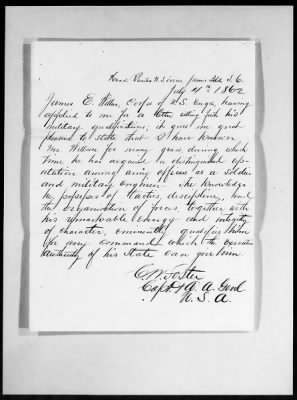 Head Quarters U.S. Forces James Isld S.C.
July 4th 1862
James E. Wilson, Corps of U.S. Engs, having
applied to me for a letter setting forth his
military qualifications, it gives me great
pleasure to state that I have known
Mr Wilson for many years during which
time he has acquired a distinguished rep-
utation among army officers as a soldier
and military engineer. The knowledge
he possesses of tactics, discipline, and
the organization of forces, together with
his remarkable energy and integrity
of character, eminently qualifies him
for any command which the Executive
authority of his State can give him
C. W. Foster
Capt & A. A. Genl
U. S. A